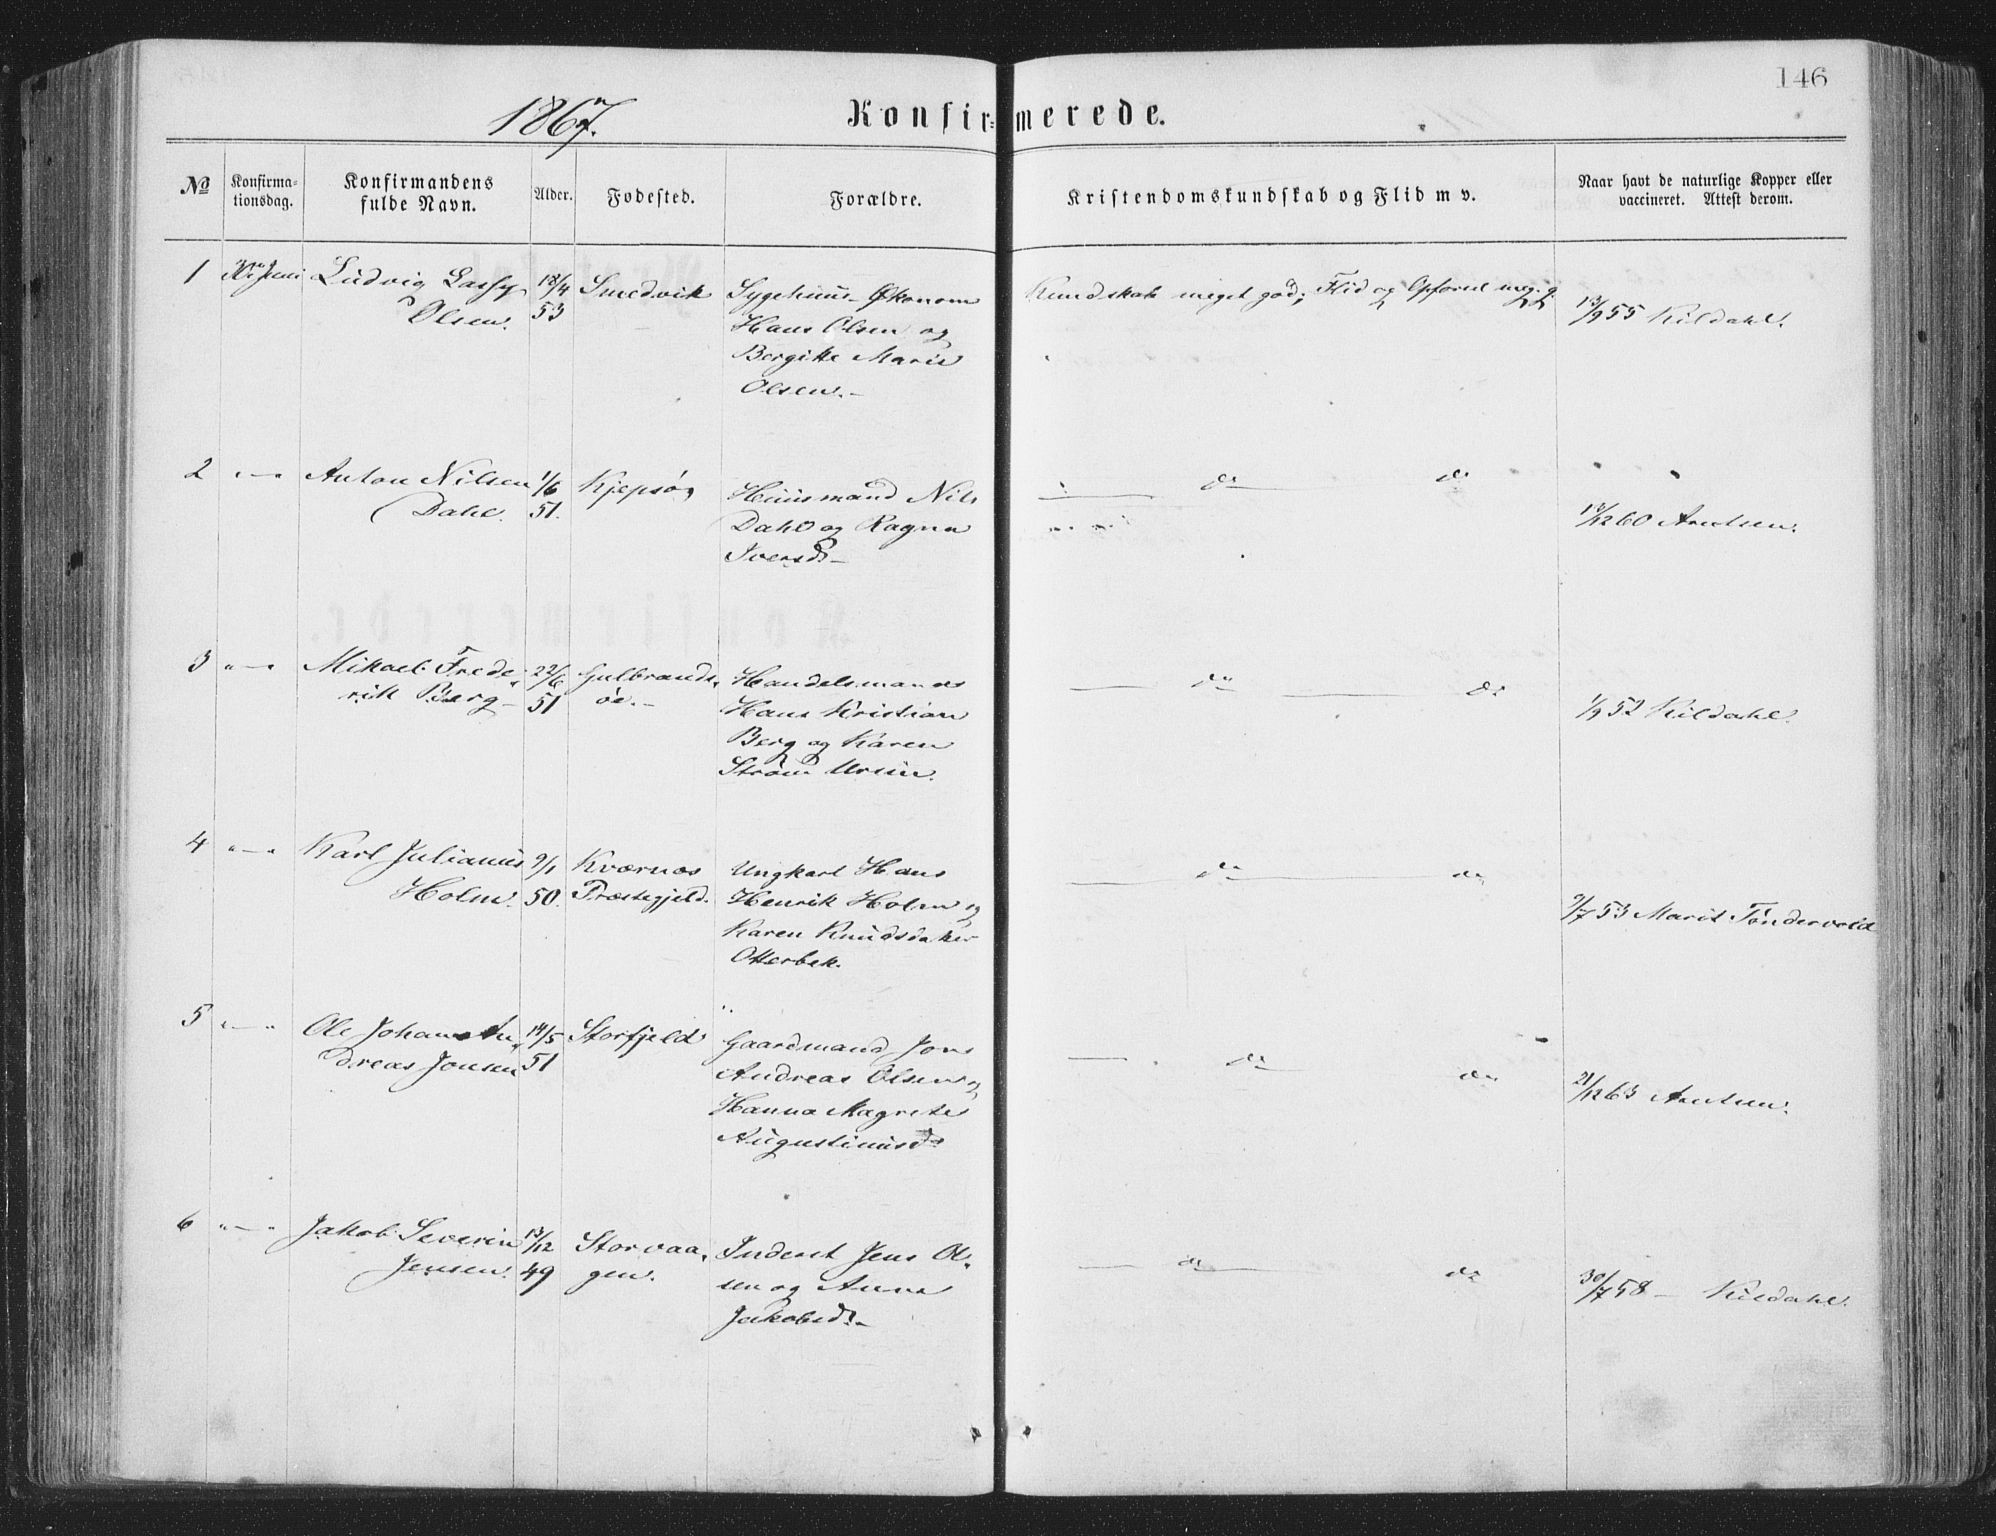 146
1867.
Konfirmerede.
No
Konfirma-
tionsdag.
Konfirmandens
fulde Navn.
Alder.
Fodested.
Forældre.
Kristendomskundskab og Flid m v.
Naar havt de naturlige Kopper eller
vaccineret. Attest derom.
1 Juni Ludvig
Olsen.
18/4
53
Smedvik
Sygehuus-Økonom
Hans Olsen og
Bergitte Marie
Olsen.-
Kundskab meget god; Flid og Opførsel meg. g.
13/9 55 Kildahl.
2 "—" Anton Nilsen
Dahl.
1/6
51.
Kjepsø
Huusmand Nils
Dahl og Ragna
Iversd.-
do do
60 Arntsen.
3 "—" Mikael Frede-
rik Berg-
22/6
51
Gulbrands-
øe.-
Handelsmand
Hans Kristian
Berg og Karen
Strøm Ursin.
do do
1/9 52 Kildahl.
4 "—" Karl Julianus
Holm.
9/1
50.
Kværnæs
Præstegjeld.
Ungkarl Hans
Henrik Holm og
Karen Knudsdatter
Otterbek.
do do
9/7 53 Marit Tøndervold
5 "—" Ole Johan An-
dreas Jonsen
14/5
51
Storfjeld
Gaardmand Jon
Andreas Olsen og
Hanna Magrete
Augustinusd.
do do
21/12 63 Arntsen.
6 "—" Jakob Severin
Jensen.
13/12
49
Storvaa-
gen.
Inderst Jens Ol-
sen og Anna
Jakobsd.-
do do
30/7 58 — Kildahl.